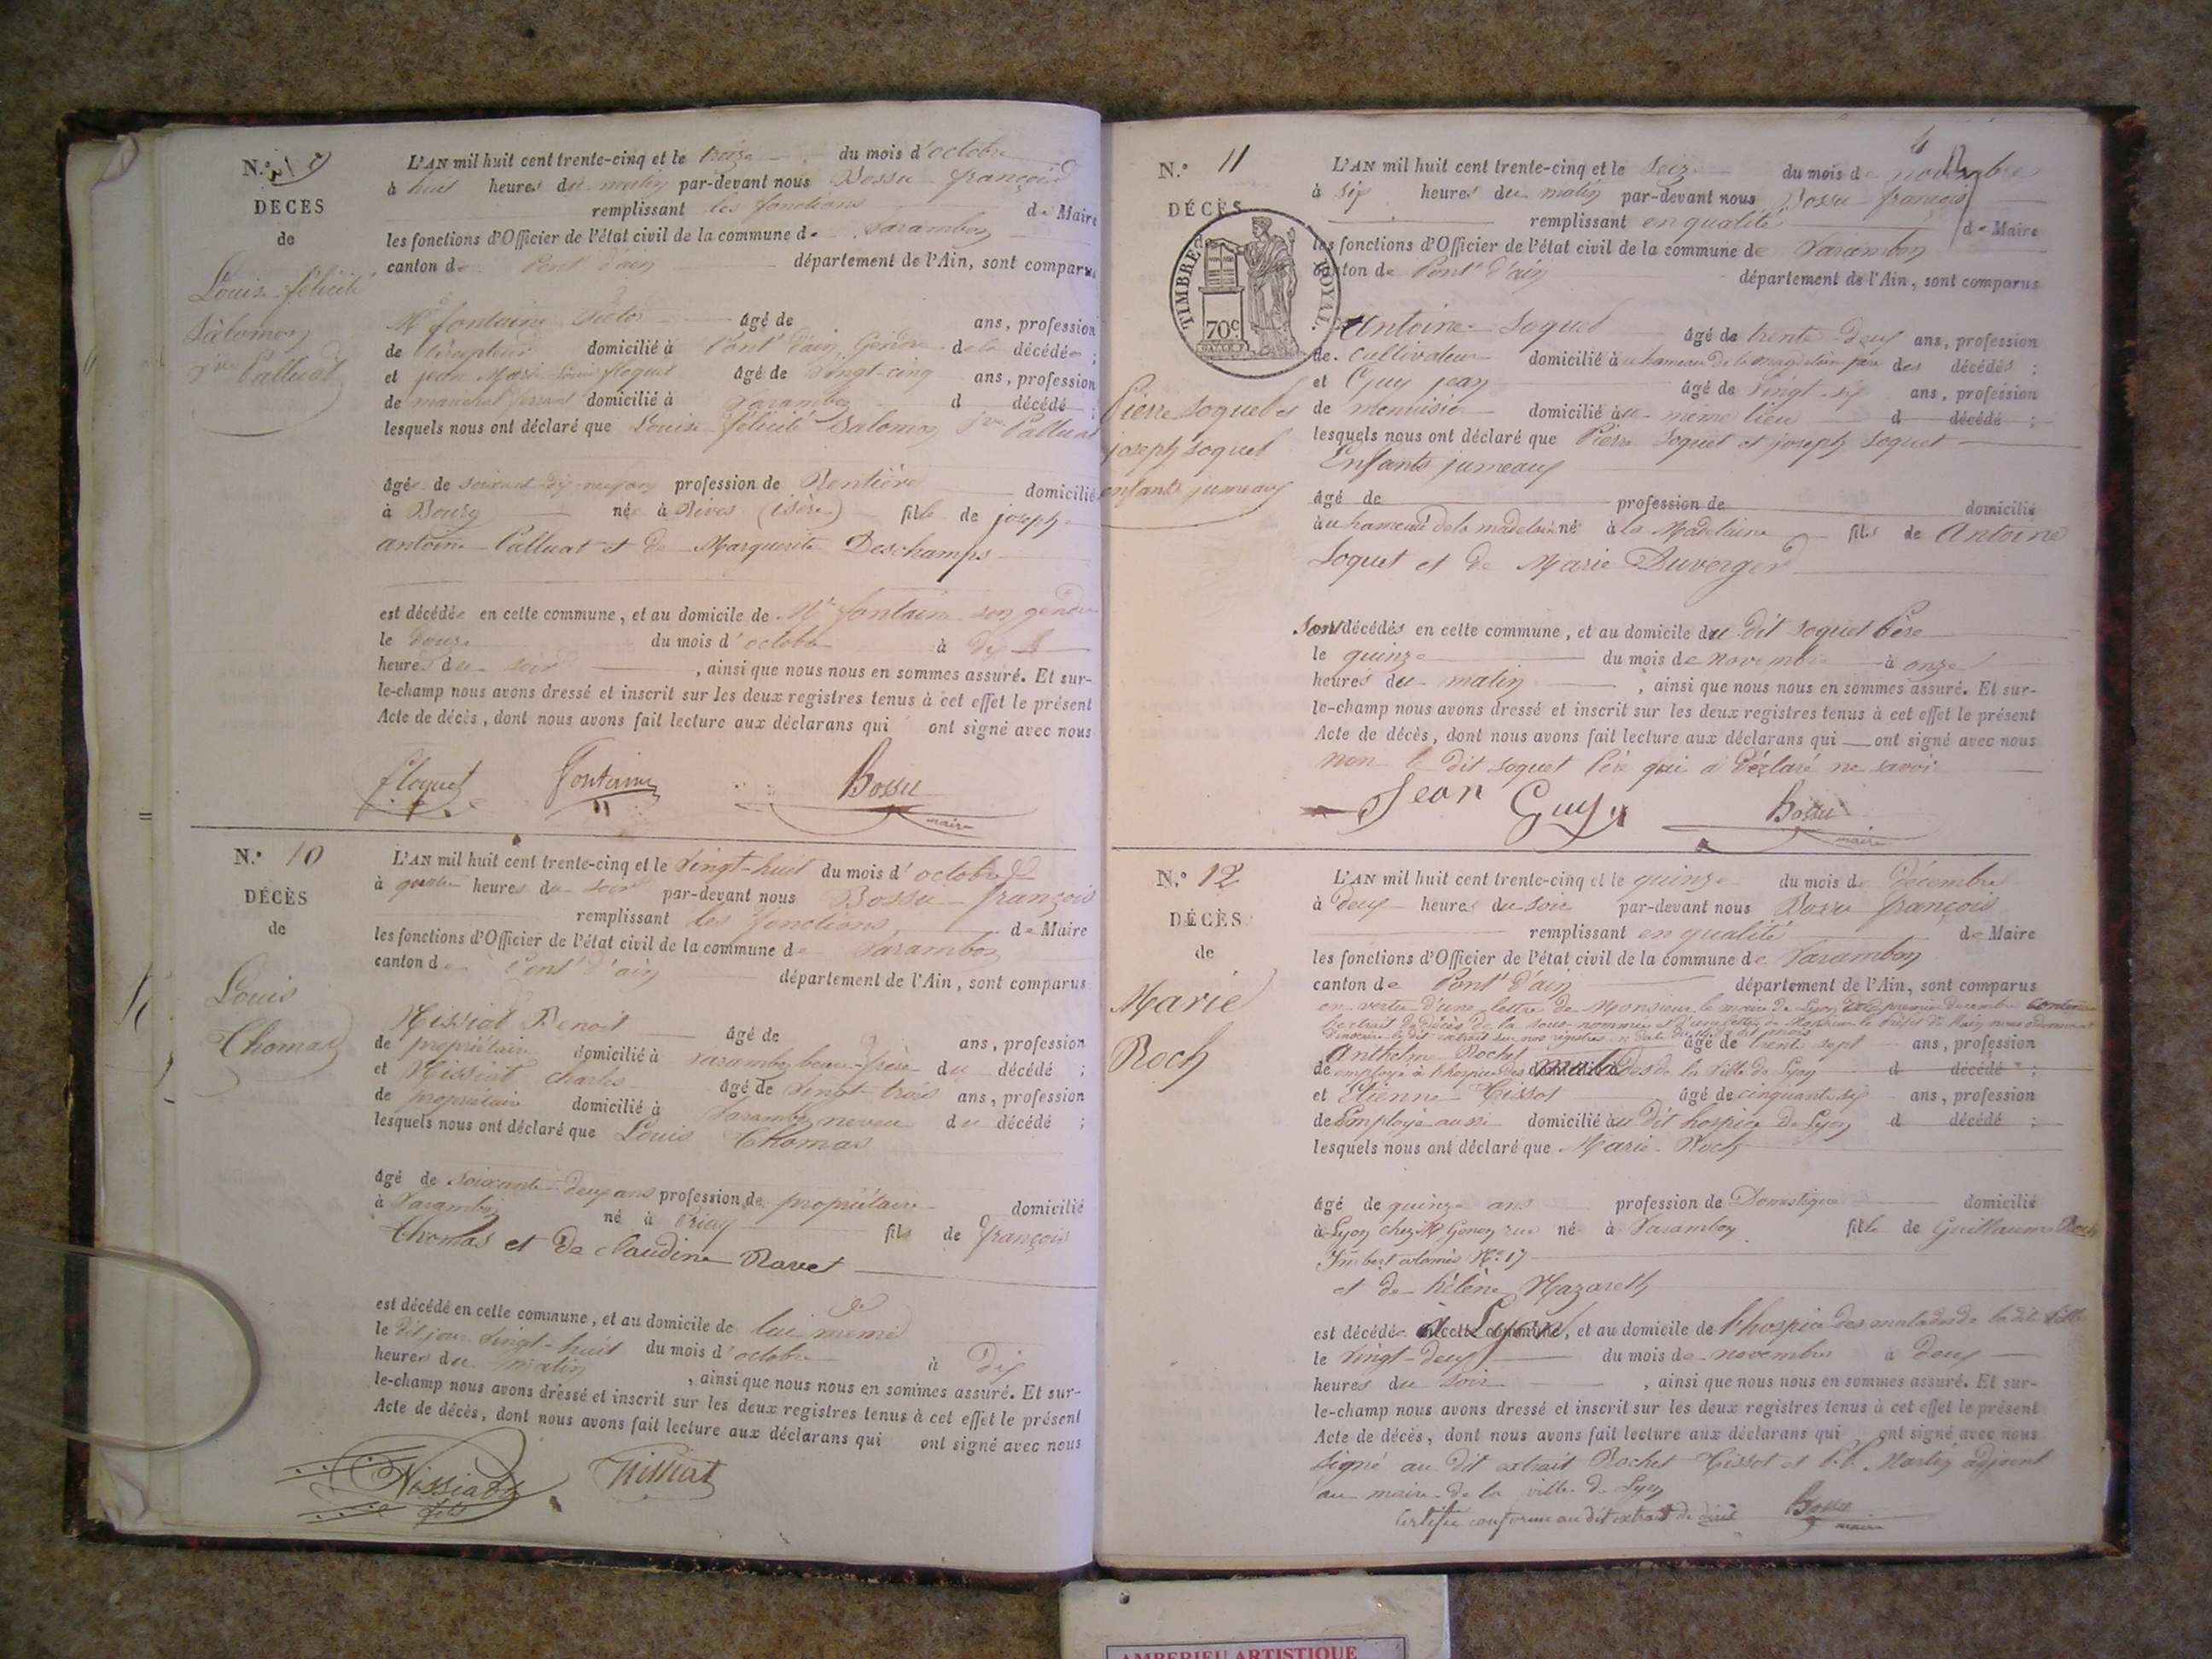 N.º 9
DECES
de
Louise félicité
Salomon
Palluat
L'AN mil huit cent trente-cinq et le treize du mois d'octobre
à huit heures du matin par-devant nous Bossu françois
remplissant les fonctions de Maire
les fonctions d'Officier de l'état civil de la commune de Varambon
canton de Pont d'ain département de l'Ain, sont comparus
Mr fontaine Victor âgé de ans, profession
de percepteur domicilié à Pont d'ain Gendre de la décédée ;
et jean Marie Louis floquet âgé de vingt-cinq ans, profession
de marechal ferrant domicilié à Varambon d décédé ;
lesquels nous ont déclaré que Louise félicité Salomon Palluat
âgée de soixante dix-neuf ans profession de Rentière domicilié
à Bourg née à Rives (isère) fille de joseph
antoine Palluat et de Marguerite Deschamps
est décédée en cette commune, et au domicile de Mr fontaine son gendre
le douze du mois d'octobre à dix
heures du soir , ainsi que nous nous en sommes assuré. Et sur-
le-champ nous avons dressé et inscrit sur les deux registres tenus à cet effet le présent
Acte de décès, dont nous avons fait lecture aux déclarans qui ont signé avec nous
floquet Fontaine Bossu
maire
N.º 10
DÉCÈS
de
Louis
Thomas
L'AN mil huit cent trente-cinq et le vingt-huit du mois d'octobre
à quatre heures du soir par-devant nous Bossu françois
remplissant les fonctions de Maire
les fonctions d'Officier de l'état civil de la commune de Varambon
canton de Pont d'ain département de l'Ain, sont comparus
Missiat Benoit âgé de ans, profession
de propriétaire domicilié à varambon beau-frère du décédé ;
et Missiat charles âgé de vingt-trois ans, profession
de propriétaire domicilié à Varambon neveu du décédé ;
lesquels nous ont déclaré que Louis Thomas
âgé de soixante-deux ans profession de propriétaire domicilié
à Varambon né à Priay fils de françois
Thomas et de claudine Ravet
est décédé en cette commune, et au domicile de lui même
le dit jour vingt-huit du mois d'octobre à Dix
heures du matin , ainsi que nous nous en sommes assuré. Et sur-
le-champ nous avons dressé et inscrit sur les deux registres tenus à cet effet le présent
Acte de décès, dont nous avons fait lecture aux déclarans qui ont signé avec nous
Missiat fils Missiat
N.º 11
DÉCÈS
de
TIMBRE ROYAL.
70c
Pierre Soquet et
joseph Soquet
enfants jumeaux
L'AN mil huit cent trente-cinq et le Seize du mois de novembre
à six heures du matin par-devant nous Bossu françois
remplissant en qualité de Maire
les fonctions d'Officier de l'état civil de la commune de Varambon
canton de Pont d'ain département de l'Ain, sont comparus
Antoine Soquet âgé de trente deux ans, profession
de cultivateur domicilié au hameau de la magdelaine père des décédés ;
et Guy jean âgé de vingt-six ans, profession
de menuisier domicilié au même lieu d décédé ;
lesquels nous ont déclaré que Pierre Soquet et joseph Soquet
Enfants jumeaux
âgé de profession de domicilié
au hameau de la madelaine né à la Madelaine fils de Antoine
Soquet et de Marie Duverger
Sont décédés en cette commune, et au domicile du dit Soquet Père
le quinze du mois de novembre à onze
heures du matin , ainsi que nous nous en sommes assuré. Et sur-
le-champ nous avons dressé et inscrit sur les deux registres tenus à cet effet le présent
Acte de décès, dont nous avons fait lecture aux déclarans qui ont signé avec nous
non le dit Soquet Père qui a déclaré ne savoir
Jean Guy Bossu
maire
N.º 12
DÉCÈS
de
Marie
Roch
L'AN mil huit cent trente-cinq et le quinze du mois de Décembre
à deux heures du soir par-devant nous Bossu françois
remplissant en qualité de Maire
les fonctions d'Officier de l'état civil de la commune de Varambon
canton de Pont d'ain département de l'Ain, sont comparus
en vertu d'une lettre de Monsieur le maire de Lyon du premier decembre contenant
l'extrait de décès de la sous-nommée et d'une lettre de Monsieur le Préfet de l'ain nous ordonnant
d'inscrire le dit extrait sur nos registres
Anthelme Rochet âgé de trente sept ans, profession
de employé à l'hospice des malades de la ville de Lyon d décédé ;
et Etienne Tissot âgé de cinquante six ans, profession
de Employé aussi domicilié au dit hospice de Lyon d décédé ;
lesquels nous ont déclaré que Marie Roch
âgé de quinze ans profession de Domestique domicilié
à Lyon chez Mr Gonon rue né à Varambon fille de Guillaume Roch
Imbert colomès N.º 17
et de hélène Nazareth
est décédée à Lyon en cette commune, et au domicile de l'hospice des malades de la dite ville
le vingt-deux du mois de novembre à deux
heures du soir , ainsi que nous nous en sommes assuré. Et sur-
le-champ nous avons dressé et inscrit sur les deux registres tenus à cet effet le présent
Acte de décès, dont nous avons fait lecture aux déclarans qui ont signé avec nous
signé au dit extrait Rochet Tissot et Martin adjoint
au maire de la ville de Lyon
Certifié conforme au dit extrait de décès Bossu
maire
AMBERIEU ARTISTIQUE